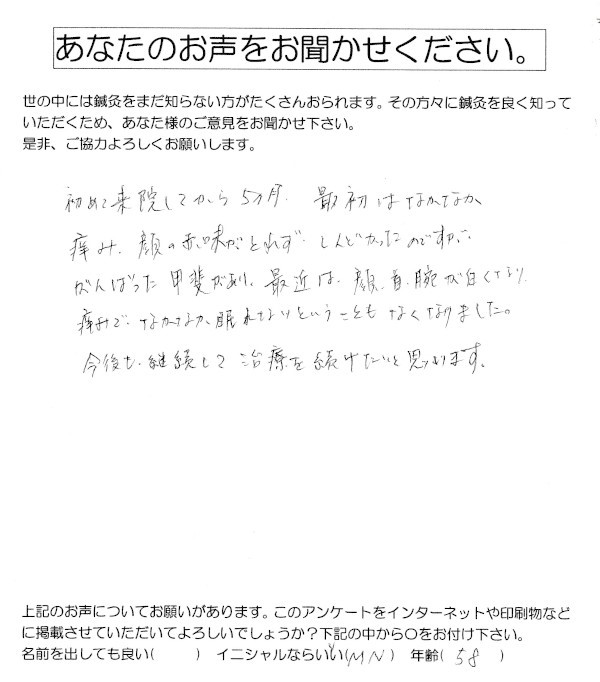 あなたのお声をお聞かせください。
世の中には鍼灸をまだ知らない方がたくさんおられます。その方々に鍼灸を良く知って
いただくため、あなた様のご意見をお聞かせ下さい。
是非、ご協力よろしくお願いします。
初めて来院してから5ヶ月. 最初はなかなか
痒み、顔の赤味がとれず しんどかったのですが、
がんばった甲斐があり、最近は、顔、首、腕が白くなり、
痒みで、なかなか眠れないということもなくなりました。
今後も、継続して治療を続けたいと思います。
上記のお声についてお願いがあります。このアンケートをインターネットや印刷物など
に掲載させていただいてよろしいでしょうか?下記の中から○をお付け下さい。
名前を出しても良い(　　) イニシャルならいい(MN) 年齢(58)